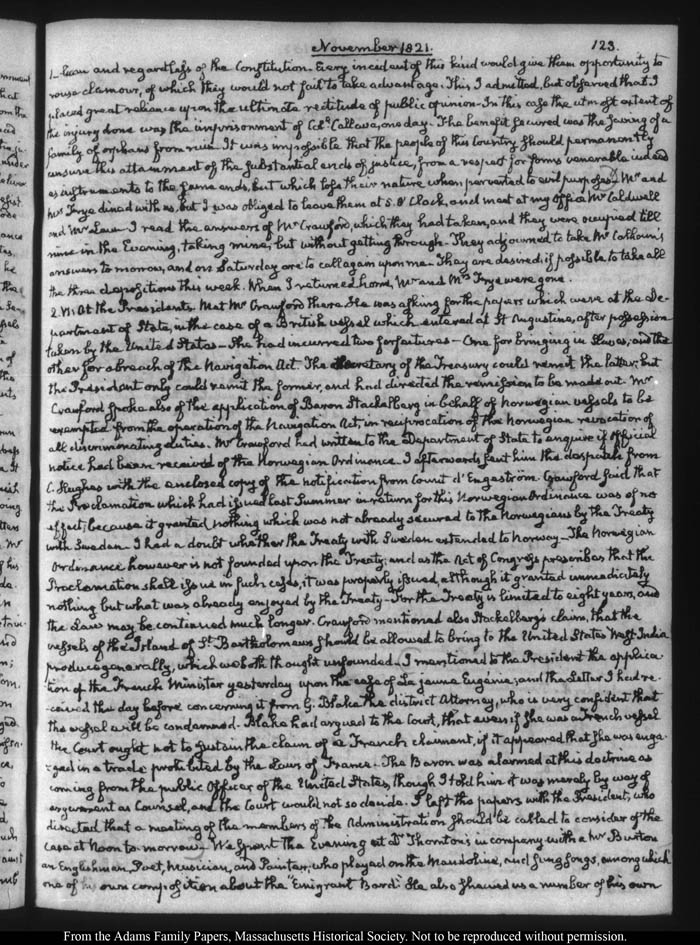 November 1821. 123.
and regardless of the Constitution. Every incident of this kind would give them opportunity to
rouse clamour, of which they would not fail to take advantage. This I admitted, but observed that I
placed great reliance upon the ultimate rectitude of public opinion. In this case the utmost extent of
the injury done was the imprisonment of Coll. Callava, one day. The benefit secured was the saving of a
family of orphans from ruin. It was impossible that the people of this Country should permanently
censure this attainment of the substantial ends of justice, from a respect for forms venerable indeed
as instruments to the same ends, but which lose their nature when perverted to evil purposes. Mr and
Mrs Frye dined with us, but I was obliged to leave them at 5. O'Clock, and meet at my Office Mr Caldwell
and Mr Law. I read the answers of Mr Crawford, which they had taken, and they were occupied till
nine in the Evening, taking mine, but without getting through. They adjourned to take Mr Calhoun's
answers to morrow, and on Saturday are to call again upon me. They are desired if possible to take all
the three depositions this week. When I returned home, Mr and Mrs Frye were gone.
2. VI. At the Presidents. Met Mr Crawford there. He was asking for the papers which were at the De-
partment of State, in the case of a British vessel which entered at St Augustine, after possession
taken by the United States. She had incurred two forfeitures. One for bringing in Slaves, and the
other for a breach of the Navigation Act. The Secretary of the Treasury could remit the latter; but
the President only could remit the former, and had directed the remission to be made out. Mr
Crawford spoke also of the application of Baron Stackelberg in behalf of Norwegian vessels to be
exempted from the operation of the Navigation Act, in reciprocation of the Norwegian revocation of
all discriminating duties. Mr Crawford had written to the Department of State to enquire if official
notice had been received of the Norwegian Ordinance. I afterwards sent him the despatch from
C. Hughes with the enclosed copy of the notification from Count d'Engeström. Crawford said that
the Proclamation which had issued last Summer in return for this Norwegian Ordinance was of no
effect; because it granted nothing which was not already secured to the Norwegians by the Treaty
with Sweden. I had a doubt whether the Treaty with Sweden extended to Norway. The Norwegian
Ordinance however is not founded upon the Treaty; and as the Act of Congress prescribes that the
Proclamation shall issue in such cases, it was properly issued, although it granted immediately
nothing but what was already enjoyed by the Treaty. For the Treaty is limited to eight years, and
the Law may be continued much longer. Crawford mentioned also Stackelberg's claim, that the
vessels of the Island of St. Bartholomews should be allowed to bring to the United States West India
produce generally, which we both thought unfounded. I mentioned to the President the applica-
tion of the French Minister yesterday upon the case of La jeune Eugénie; and the Letter I had re-
ceived the day before concerning it from G. Blake the district Attorney, who is very confident that
the vessel will be condemned. Blake had argued to the Court, that even if she was a French vessel
the Court ought not to sustain the claim of a French claimant, if it appeared that she was enga-
-ged in a trade prohibited by the Laws of France. The Baron was alarmed at this doctrine as
coming from the public Officer of the United States, though I told him it was merely by way of
argument as Counsel, and the Court would not so decide. I left the papers with the President, who
directed that a meeting of the members of the Administration should be called to consider of the
case at Noon to-morrow. We spent the Evening at Dr Thornton's in company with a Mr Buxton
an Englishman, Poet, Musician, and Painter; who played on the Mandoline, and sung songs, among which
one of his own composition about the "Emigrant Bard." He also shewed us a number of his own
From the Adams Family Papers, Massachusetts Historical Society. Not to be reproduced without permission.